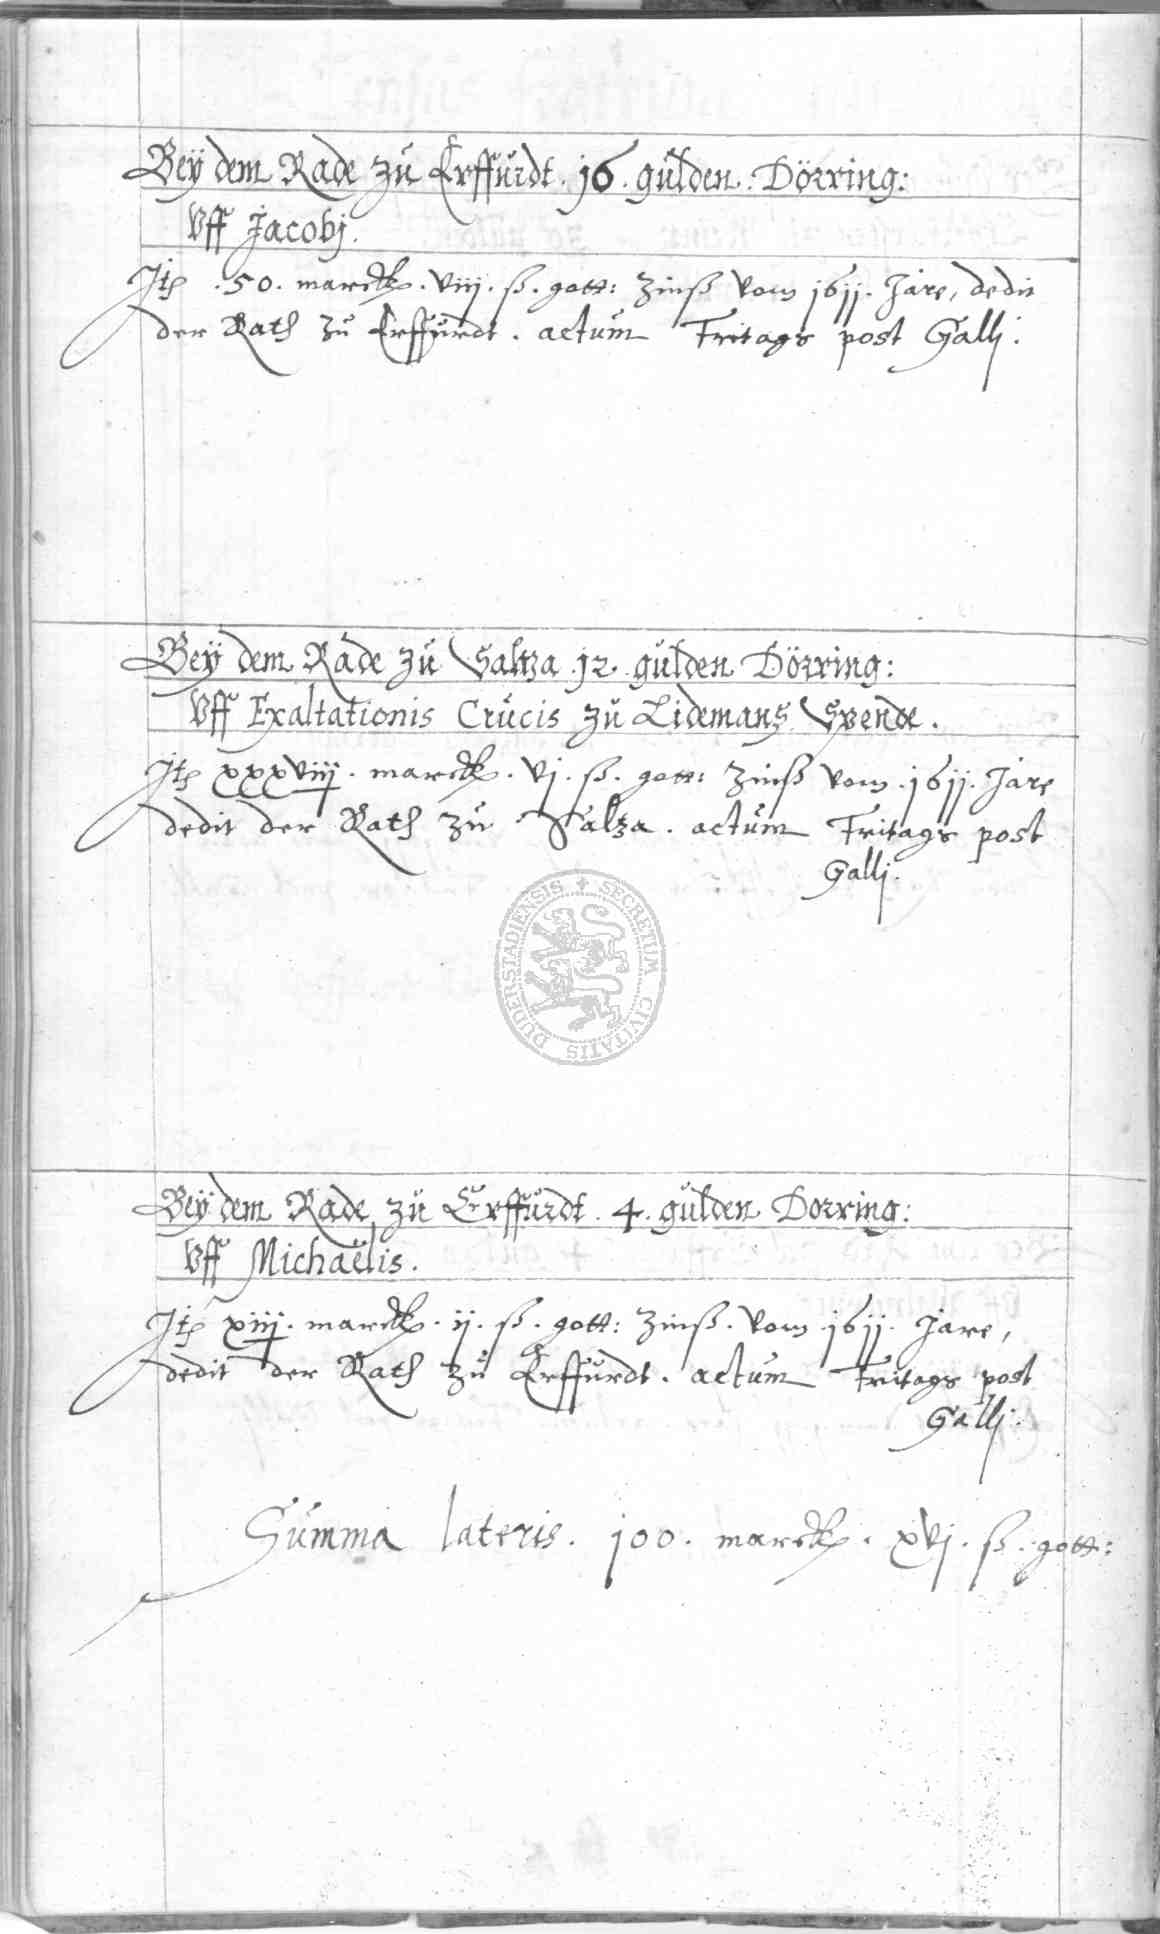 Beÿ dem Rade zu Erffurdt . 16 . gulden . Dörring:
Vff Jacobj.
Jtem . 50 . marck . viij . ß . gott: Zinß vom 1611. Jare, dedit
der Rath zu Erffurdt . actum Fritags post Gallj.
Beÿ dem Rade zu Saltza 12 . gulden Dörring:
Vff Exaltationis Crucis zu Lidemans Spende .
Jtem xxxviij . marck . vj . ß . gott: Zinß vom . 1611. Jare
dedit der Rath zu Saltza . actum Fritags post
Gallj.
SECRETUM CIVITATIS DUDERSTADIENSIS
Beÿ dem Rade zu Erffurdt . 4 . gulden Dorring:
Vff Michaëlis .
Jtem xiij . marck . ij . ß . gott: Zinß . vom . 1611. Jare,
dedit der Rath zu Erffurdt . actum Fritags post
Gallj.
Summa lateris . 100 . marck . xvj . ß . gott: